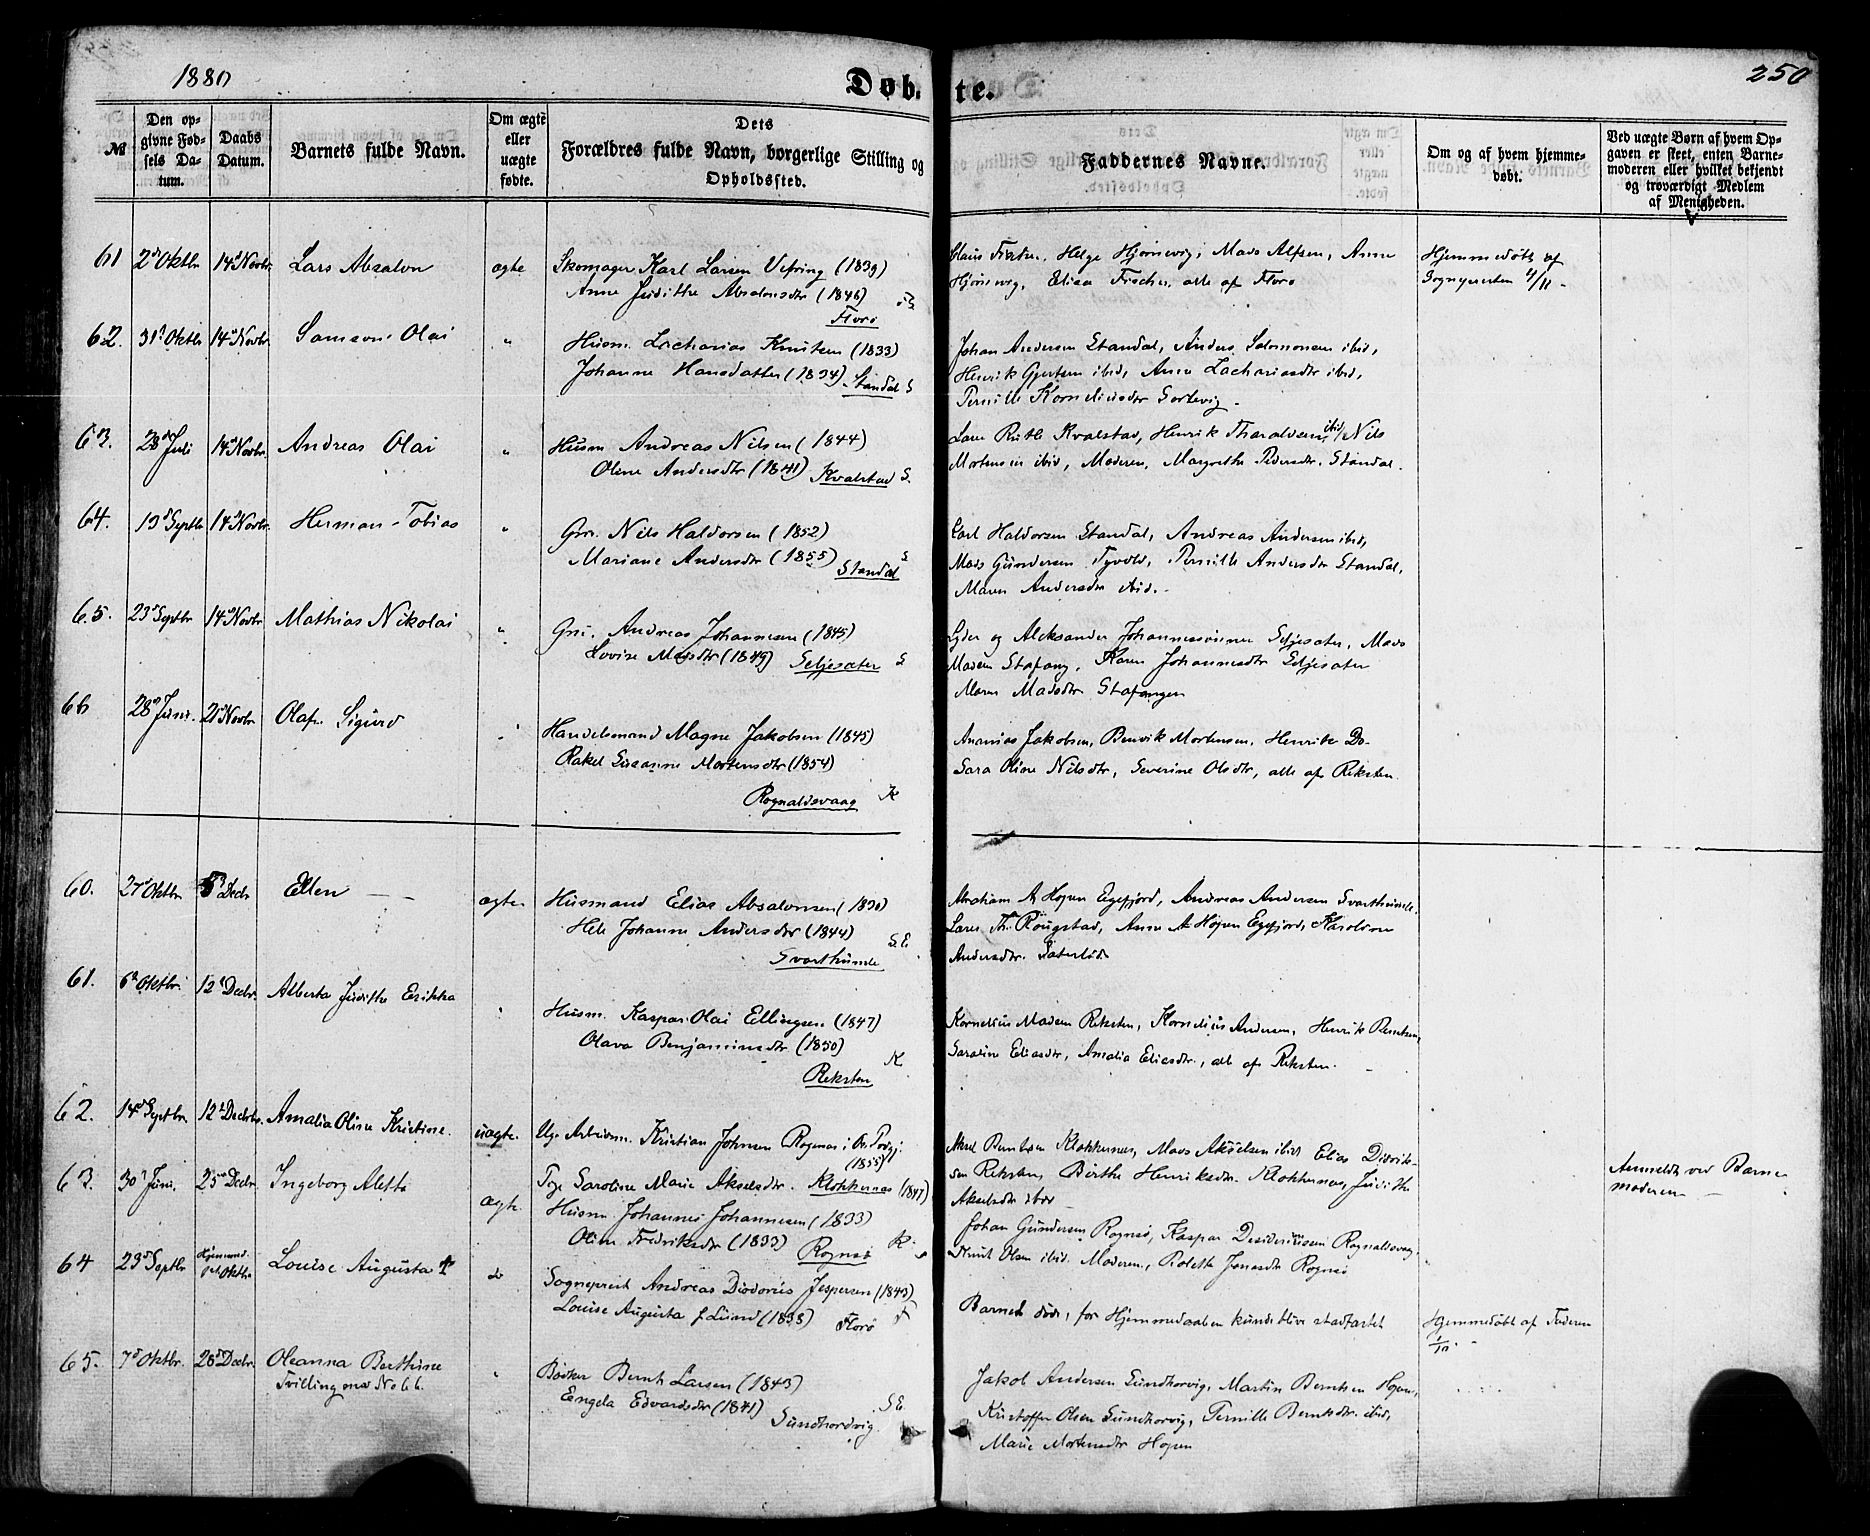 1880
Døbte.
250
№
Den opgivne Fødsels Datum.
Daabs Datum.
Barnets fulde Navn.
Om ægte eller uægte fødte.
Dets Forældres fulde Navn, borgerlige Stilling og Opholdssted.
Faddernes Navne.
Om og af hvem hjemmedøbt.
Ved uægte Børn af hvem Opgaven er skeet, enten Barnemoderen eller hvilket bekjendt og troværdigt Medlem af Menigheden.
61 2d Oktbr 14d Novbr. Lars Absalon ægte
Skomager Karl Larsen Vefring (1839)
Anne Judithe Absalonsdtr (1846)
Florø
Helge Hjørnevig, Mads Alfsen, Anne
Hjørnevig, Elisa Fischer, alle af Florø
Hjemmedøbt af
Sognepresten 4/11
62. 31t Oktbr 14d Novbr. Samson Olai "
Husm. Zacharias Knutsen (1833)
Johanne Hansdatter (1834) Standal S
Johan Andersen Standal, Anders Salomonsen ibid,
Henrik Gjertsen ibid, Anne Zachariasdtr ibid,
Pernille Korneliusdtr Sortevig.
63. 28de Juli 14d Novbr. Andreas Olai "
Husm Andreas Nilsen (1844)
Oline Andersdtr (1841) Kvalstad S.
Kvalstad, Henrik Tharaldsen ibid, Nils
Mortensen ibid, Moderen, Margrethe Pedersdtr. Standal.
64. 13d Septbr 14d Novbr. Herman Tobias "
Grn. Nils Haldorsen (1852)
Mariane Andersdtr (1855) Standal S
Carl Haldorsen Standal, Andreas Andersen ibid,
Mads Gundersen Tyvold, Pernille Andersdtr Standal,
Maren Andersdtr ibid.
65. 23d Septbr 14d Novbr Mathias Nikolai "
Grn. Andreas Johannesen (1845)
Lovise Madsdtr (1849) Seljesæter S
Peder og Aleksander Johannessønner Seljesæter, Mads
Madsen Stafang, Karen Johannesdtr Seljesæter
Maren Madsdtr Stafangen
66 28de Juni 21d Novbr. Olaf Sigurd "
Handelsmand Magne Jakobsen (1845)
Rakel Susanne Mortensdtr (1854)
Rognaldsvaag K
Ananias Jakobsen, Benrik Mortensen, Henrik Do.
Sara Oline Nilsdtr, Severine Olsdtr, alle af Reksten.
60. 27d Oktbr. 5d Decbr Ellen ægte
Husmand Elias Absalonsen (1830)
Hele Johanne Andersdtr (1844) S.E.
Svarthumle
Abraham A Hopen Egefjord, Andreas Andersen Svarthumle.
Lars Th. Rougstad, Anne A Hopen Egefjord, Karoline
Andersdtr.
61. 6t Oktbr. 12t Decbr. Alberta Judithe Erikka "
Husm. Kaspar Olai Ellingsen (1847)
Olava Benjaminsdtr (1850) K
Reksten
Kornelius Madsen Reksten, Kornelius Andersen, Henrik Rasmussen,
Sarasine Eliasdtr, Amalia Eliasdtr., alle af Reksten.
62. 14d Septbr. 12t Decbr. Amalia Oline Kristine. uægte.
Uge Arbeidsm. Kristian Johnsen
(1855)
Pige Saroline Marie Akselsdtr. Klokkernæs (1847)
Aksel Berntsen Klokkernæs, Mads Akselsen ibid Elias Didriksen
Reksten, Børthe Henriksdtr. Klokkernæs, Judithe
Akselsdtr ibid
Anmeldt ved Barnemoderen
63. 30t Juni. 25d Decbr Ingeborg Aletta ægte
Husm Johannes Johannesen (1833)
Oline Fredriksdtr (1833) Rognsø K.
Johan Gundersen Rognsø, Kaspar Desideriussen Rognaldsvaag,
Knut Olsen ibid. Moderen, Rolette Jonasdtr Rognsø
64 29d Septbr Hjemmed. 1st Oktbr Louise Augusta † do
Sogneprest Andreas Diodorius Jespersen (1843)
Louise Augusta f. Lund (1838) Florø F
Barnet døde, før Hjemmedaaben kunde blive stadfæstet
Hjemmedøbt af Faderen
1/10.
65. 7d Oktbr. 26d Decbr. Oleanna Berthine "
Tvilling med No 66.
Bødker Bernt Larsen (1843)
Engela Edvardsdtr (1841) S.E
Sundhordvig.
Jakob Andersen Sundhorvig, Martin Berntsen Hopen,
Kristoffer Olsen Sundhorvig, Pernille Berntsdtr. ibid,
Marie Mortensdtr Hopen